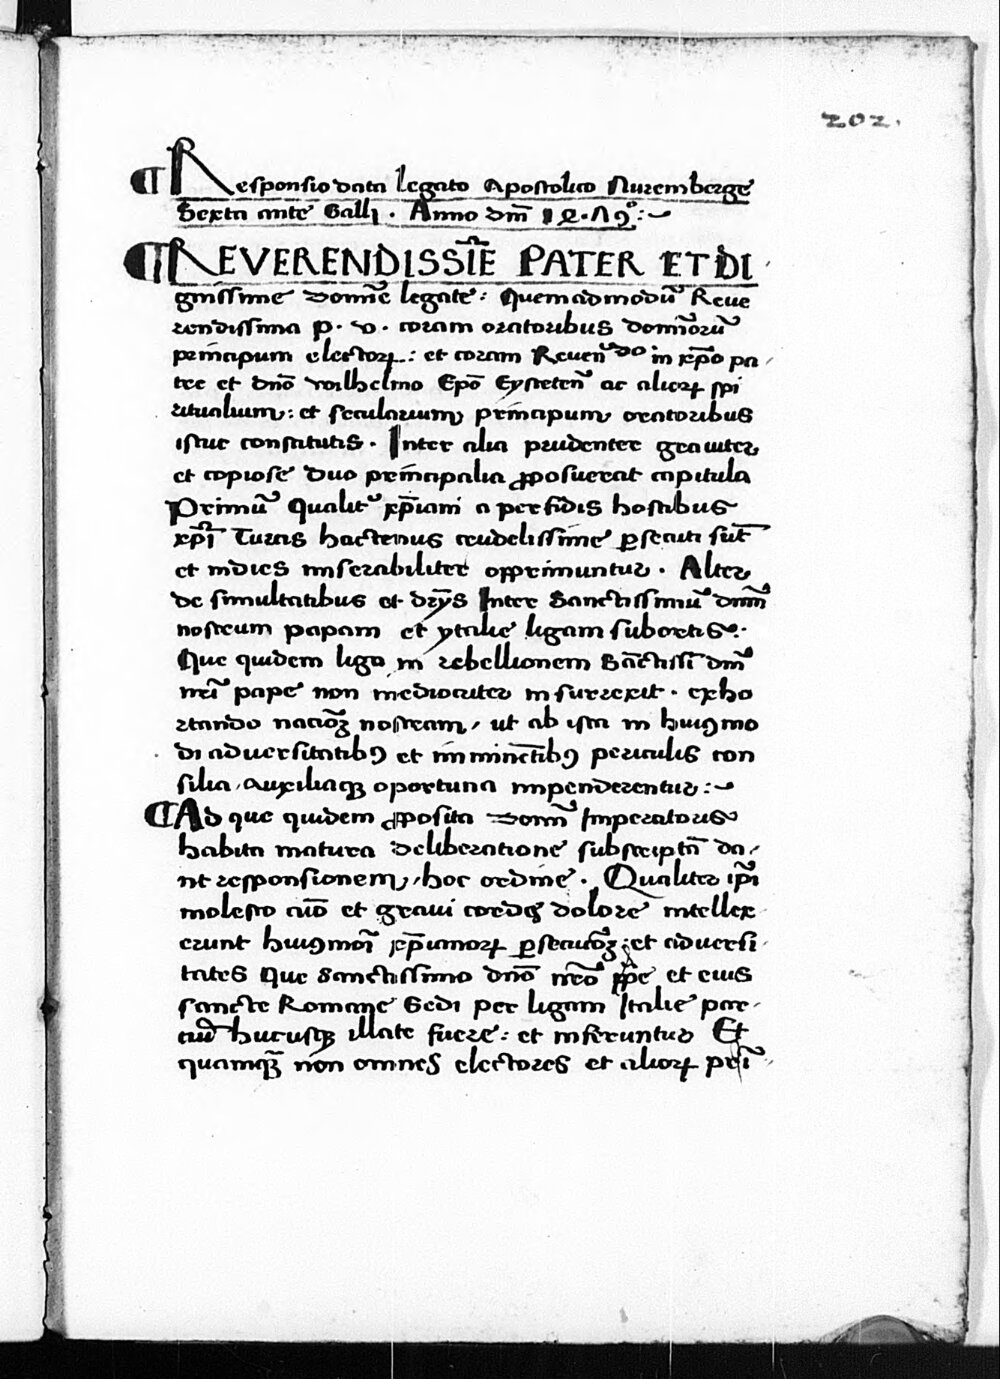 202.
¶ Responsio data legato Apostolico Nuremberge
Sexta ante Galli . Anno dnī 1479º :~
¶ REVERENDISSIE̅ PATER ET DI
gnissime Domine̅ legate : Quemadmodu̅ Reue
rendissima p. v. coram oratoribus domino̅ru̅
principum elector̅ꝝ : et coram Reuen̅do in xp̅o pa
tre et dn̅o wilhelmo Ep̅o Eysteten̅ ac aliorꝝ spi
ritualium : et secularium principum oratoribus
istuc constitutis . Inter alia prudenter grauiter
et copiose duo principalia ꝓposuerat capitula
Primu̅ Qualit᷑ xp̅iani a perfidis hostibus
xp̅i Turcis hactenus crudelissime ꝑsecuti su̅t
et indies miserabiliter opprimuntur . Alter
de simultatibus et diʒys Inter Sanctissimu̅ dnm̅
nostrum papam et ytalie ligam subortis .
Que quidem liga in rebellionem Sa̅ctissi̅ dn̅i
nr̅i pape non mediocriter insurrexit . exho
rtando nacioʒ̅ nostram, ut ab ista in huiꝰmo
di aduersitatibꝰ et immine̅tibꝰ periculis con
silia, auxiliaqꝫ oportuna impenderentur :~
¶ Ad que quidem ꝓposita Domi̅ Imperatoris
habita matura deliberatione subscripta̅ da,
nt responsionem, hoc ordine . Qualiter ip̅i
molesto a̅io et graui cordis dolore intellex
erunt huiꝰmo̅i xp̅ianorꝝ ꝑsecucoʒ̅ ; et aduersi
tates Que Sanctissimo dn̅o nr̅o pp̅e et eius
sancte Romane Sedi per ligam Italie par,
ciu̅ hucusqꝫ illate fuere : et inferuntur Et
quamqꝫ̅ non omnes electores et aliorꝝ pri̅